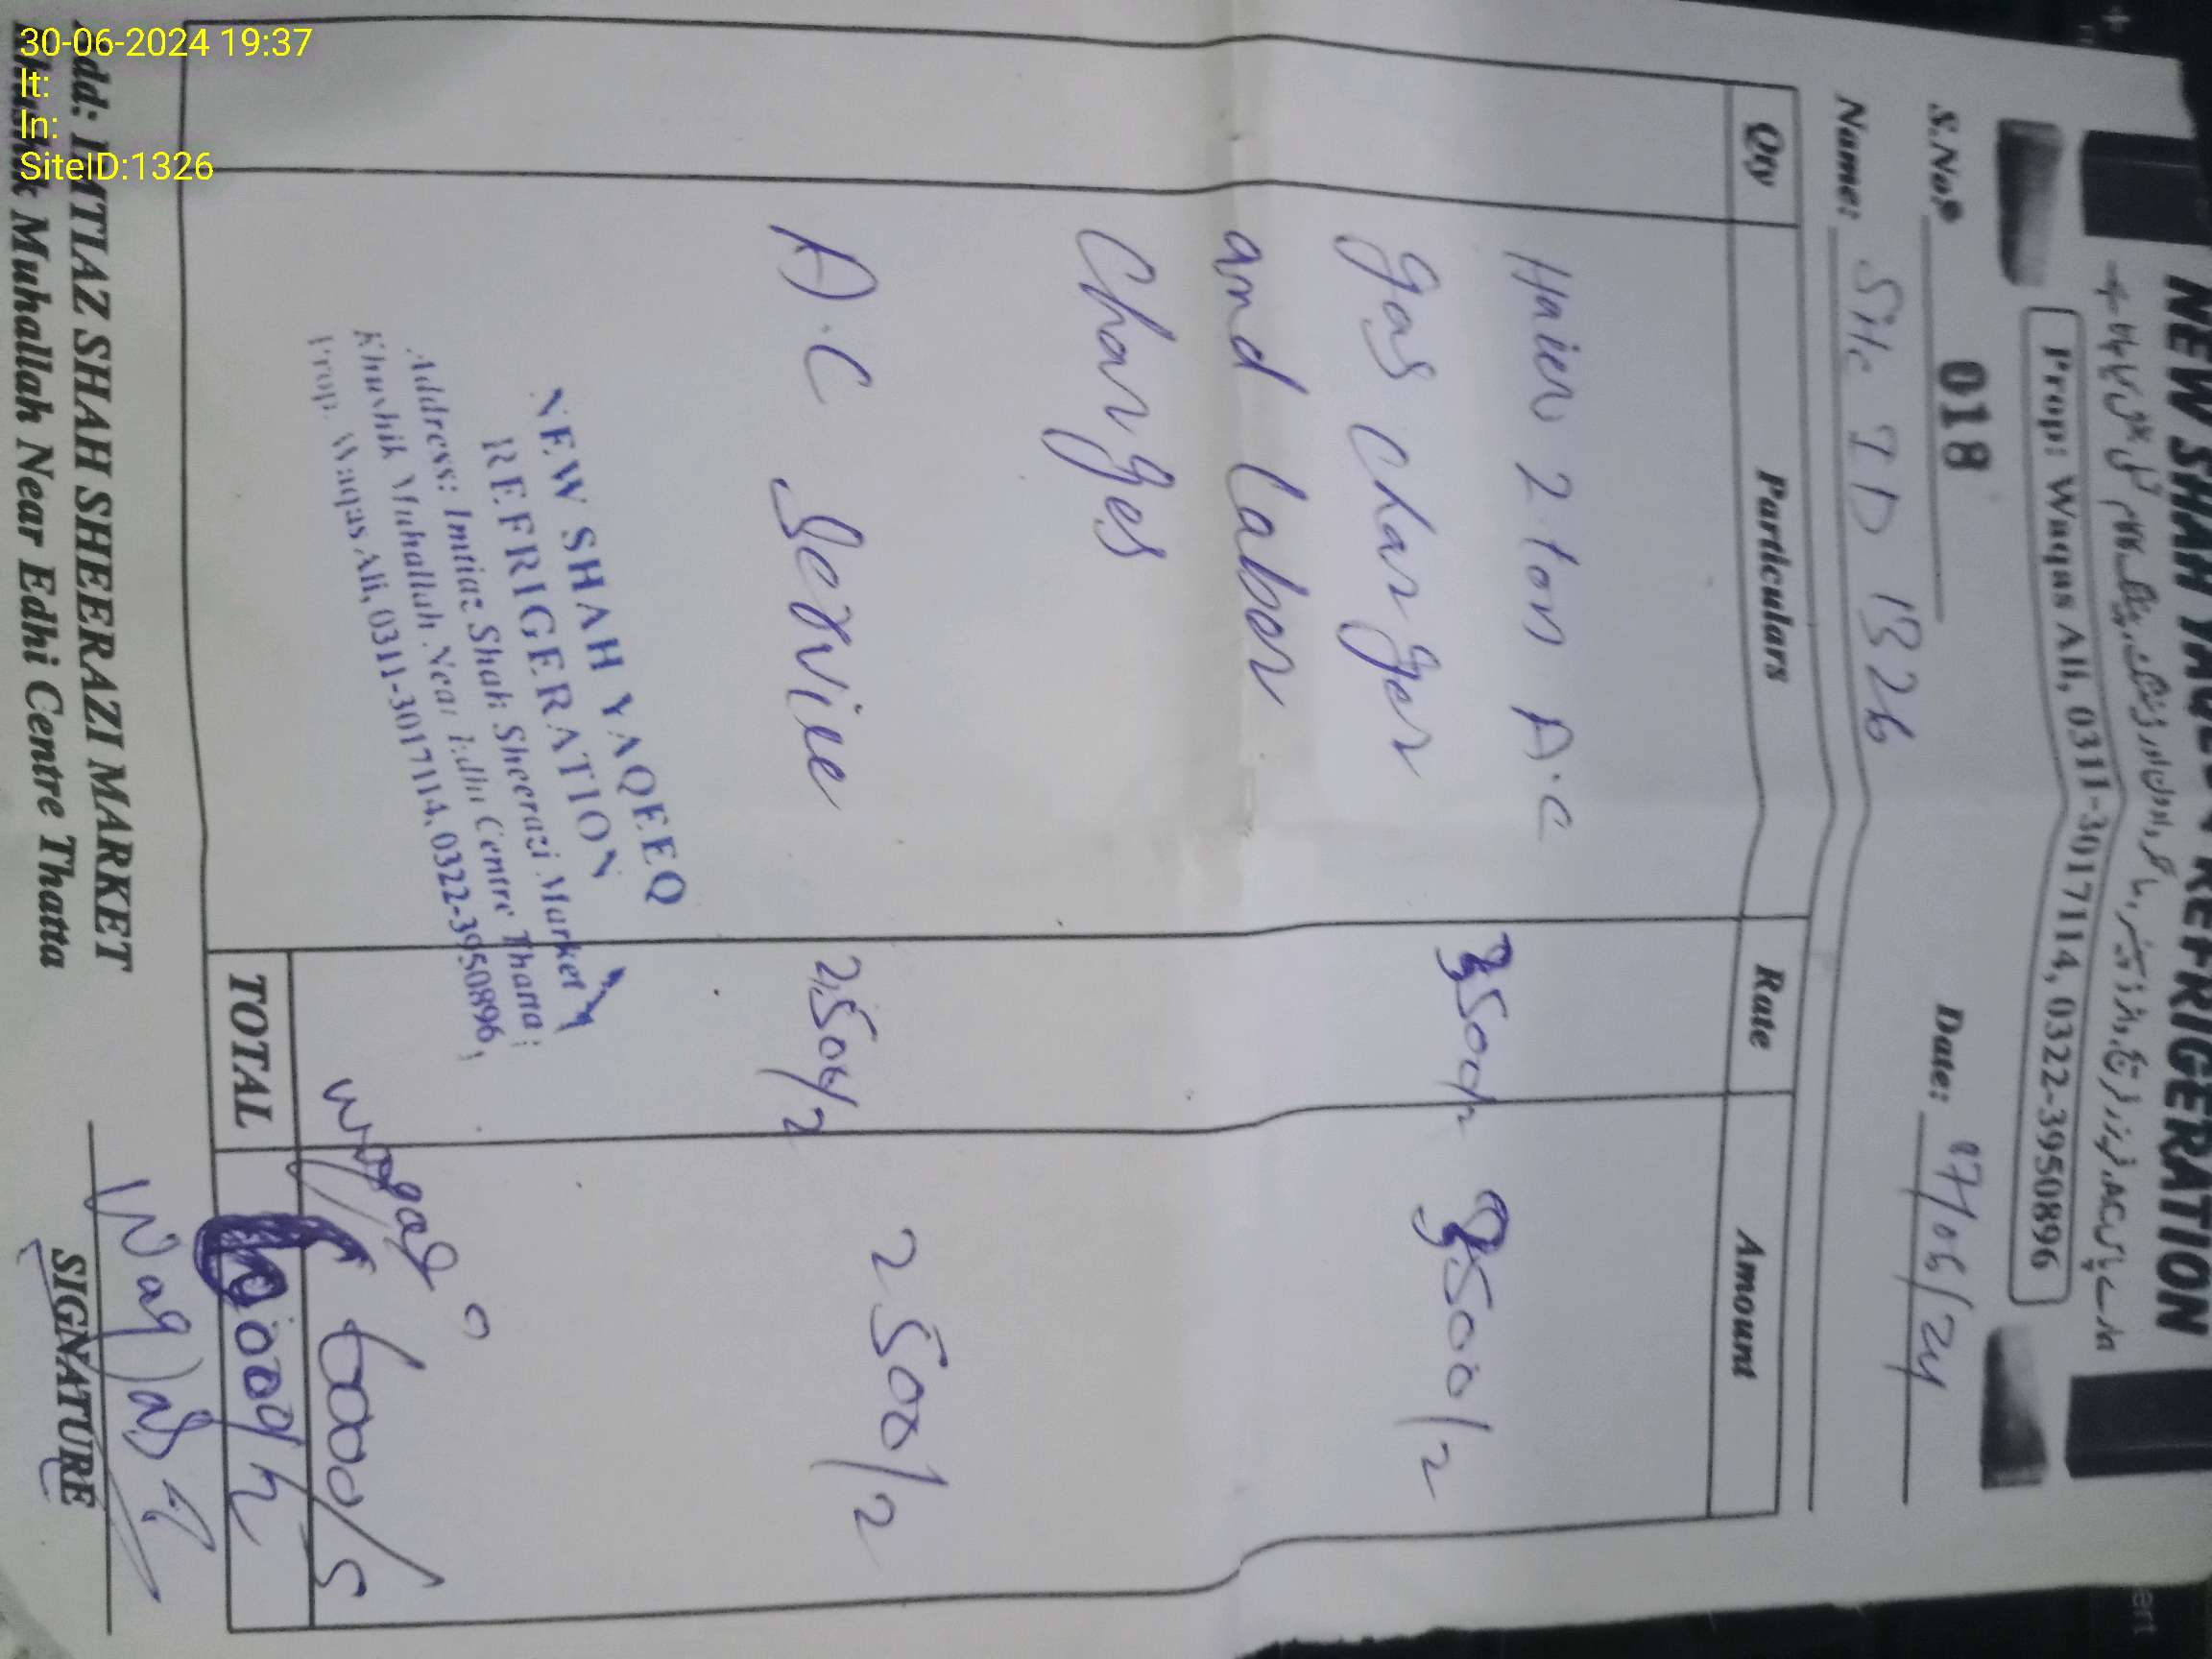 30-06-2024 19:37
lt:
ln:
SiteID:1326
NEW SHAH YAQEEQ REFRIGERATION
Prop: Waqas Ali, 0311-3017114, 0322-3950896
S.No: 018 Date: 07/06/24
Name: Site ID 1326
Qty Particulars Rate Amount
Haier 2 ton A.C
gas charger 3500/2 3500/2
and labor
Charges
A.C Service 2500/2 2500/2
NEW SHAH YAQEEQ
REFRIGERATION
Address: Imtiaz Shah Sheerazi Market
Khushik Muhallah Near Edhi Centre Thatta
Prop. Waqas Ali, 0311-3017114, 0322-3950896
Waqas
6000/5
TOTAL 6000/2
Waqas
SIGNATURE
Add: IMTIAZ SHAH SHEERAZI MARKET
Khushik Muhallah Near Edhi Centre Thatta